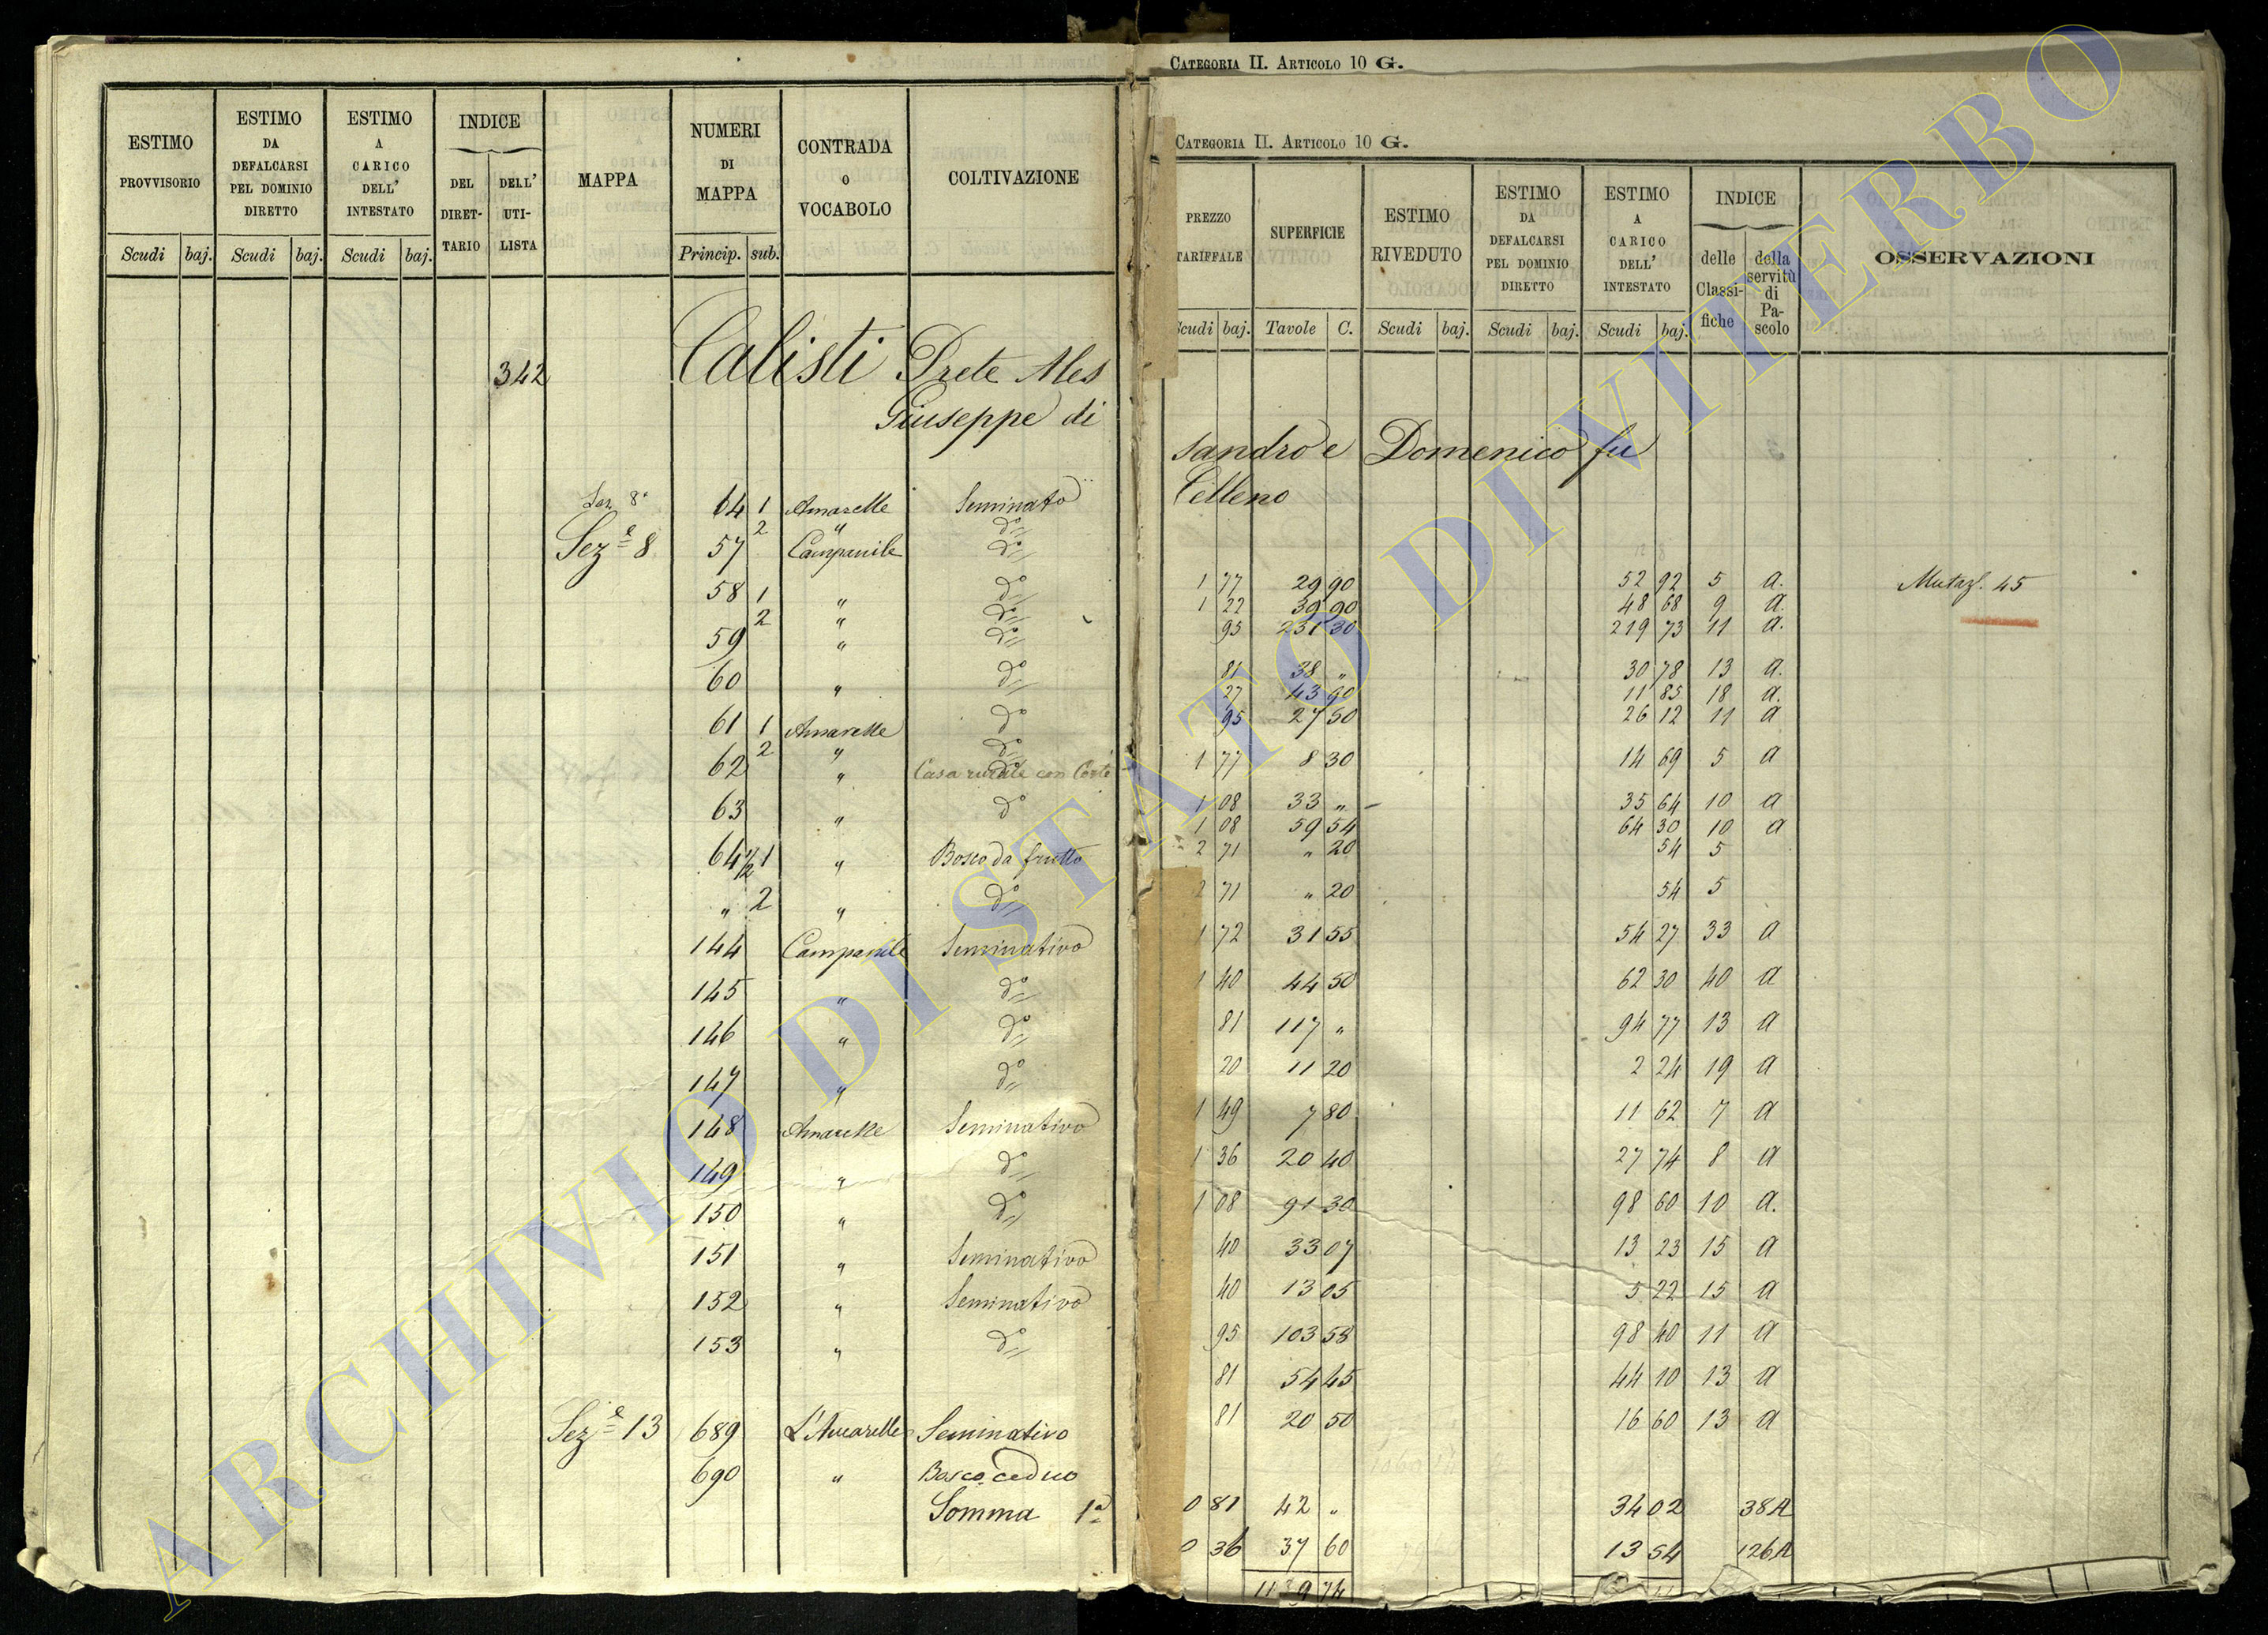 CATEGORIA II. ARTICOLO 10 G.
CATEGORIA II. ARTICOLO 10 G.
ESTIMO PROVVISORIO
ESTIMO DA DEFALCARSI PEL DOMINIO DIRETTO
ESTIMO A CARICO DELL' INTESTATO
INDICE
DEL DIRET-TARIO
DELL' UTI-LISTA
MAPPA
NUMERI DI MAPPA
CONTRADA O VOCABOLO
COLTIVAZIONE
Scudi baj. Scudi baj. Scudi baj. Princip. sub.
342 Calisti Prete Ales
Giuseppe di
Sez 8ª 64 1 Amarelle Seminato
2 " do
Seze 8 57 Campanile do
58 1 " do
2 " do
59 " do
60 " do
61 1 Amarelle do
2 " do
62 " Casa rurale con Corte
63 " do
64 1/2 1 " Bosco da frutto
" 2 " do
144 Campanile Seminativo
145 " do
146 " do
147 " do
148 Amarelle Seminativo
149 " do
150 " do
151 " Seminativo
152 " Seminativo
153 " do
Seze 13 689 L'Amarelle Seminativo
690 " Bosco ceduo
Somma 1a
PREZZO TARIFFALE
SUPERFICIE
ESTIMO RIVEDUTO
ESTIMO DA DEFALCARSI PEL DOMINIO DIRETTO
ESTIMO A CARICO DELL' INTESTATO
INDICE
delle Classi-fiche
della servitù di Pa-scolo
OSSERVAZIONI
Scudi baj. Tavole C. Scudi baj. Scudi baj. Scudi baj.
sandro e Domenico fu
Celleno
1 77 29 90 52 92 5 a. Mutaz. 45
1 22 39 90 48 68 9 a.
95 231 30 219 73 11 a.
81 38 " 30 78 13 a.
27 43 90 11 85 18 a.
95 27 50 26 12 11 a
1 77 8 30 14 69 5 a
1 08 33 " 35 64 10 a
1 08 59 54 64 30 10 a
2 71 " 20 54 5
2 71 " 20 54 5
1 72 31 55 54 27 33 a
1 40 44 50 62 30 40 a
81 117 " 94 77 13 a
20 11 20 2 24 19 a
1 49 7 80 11 62 7 a
1 36 20 40 27 74 8 a
1 08 91 30 98 60 10 a.
40 33 07 13 23 15 a
40 13 05 5 22 15 a
95 103 58 98 40 11 a
81 54 45 44 10 13 a
81 20 50 16 60 13 a
0 81 42 " 34 02 38 A
0 36 37 60 13 54 126 A
74
ARCHIVIO DI STATO DI VITERBO